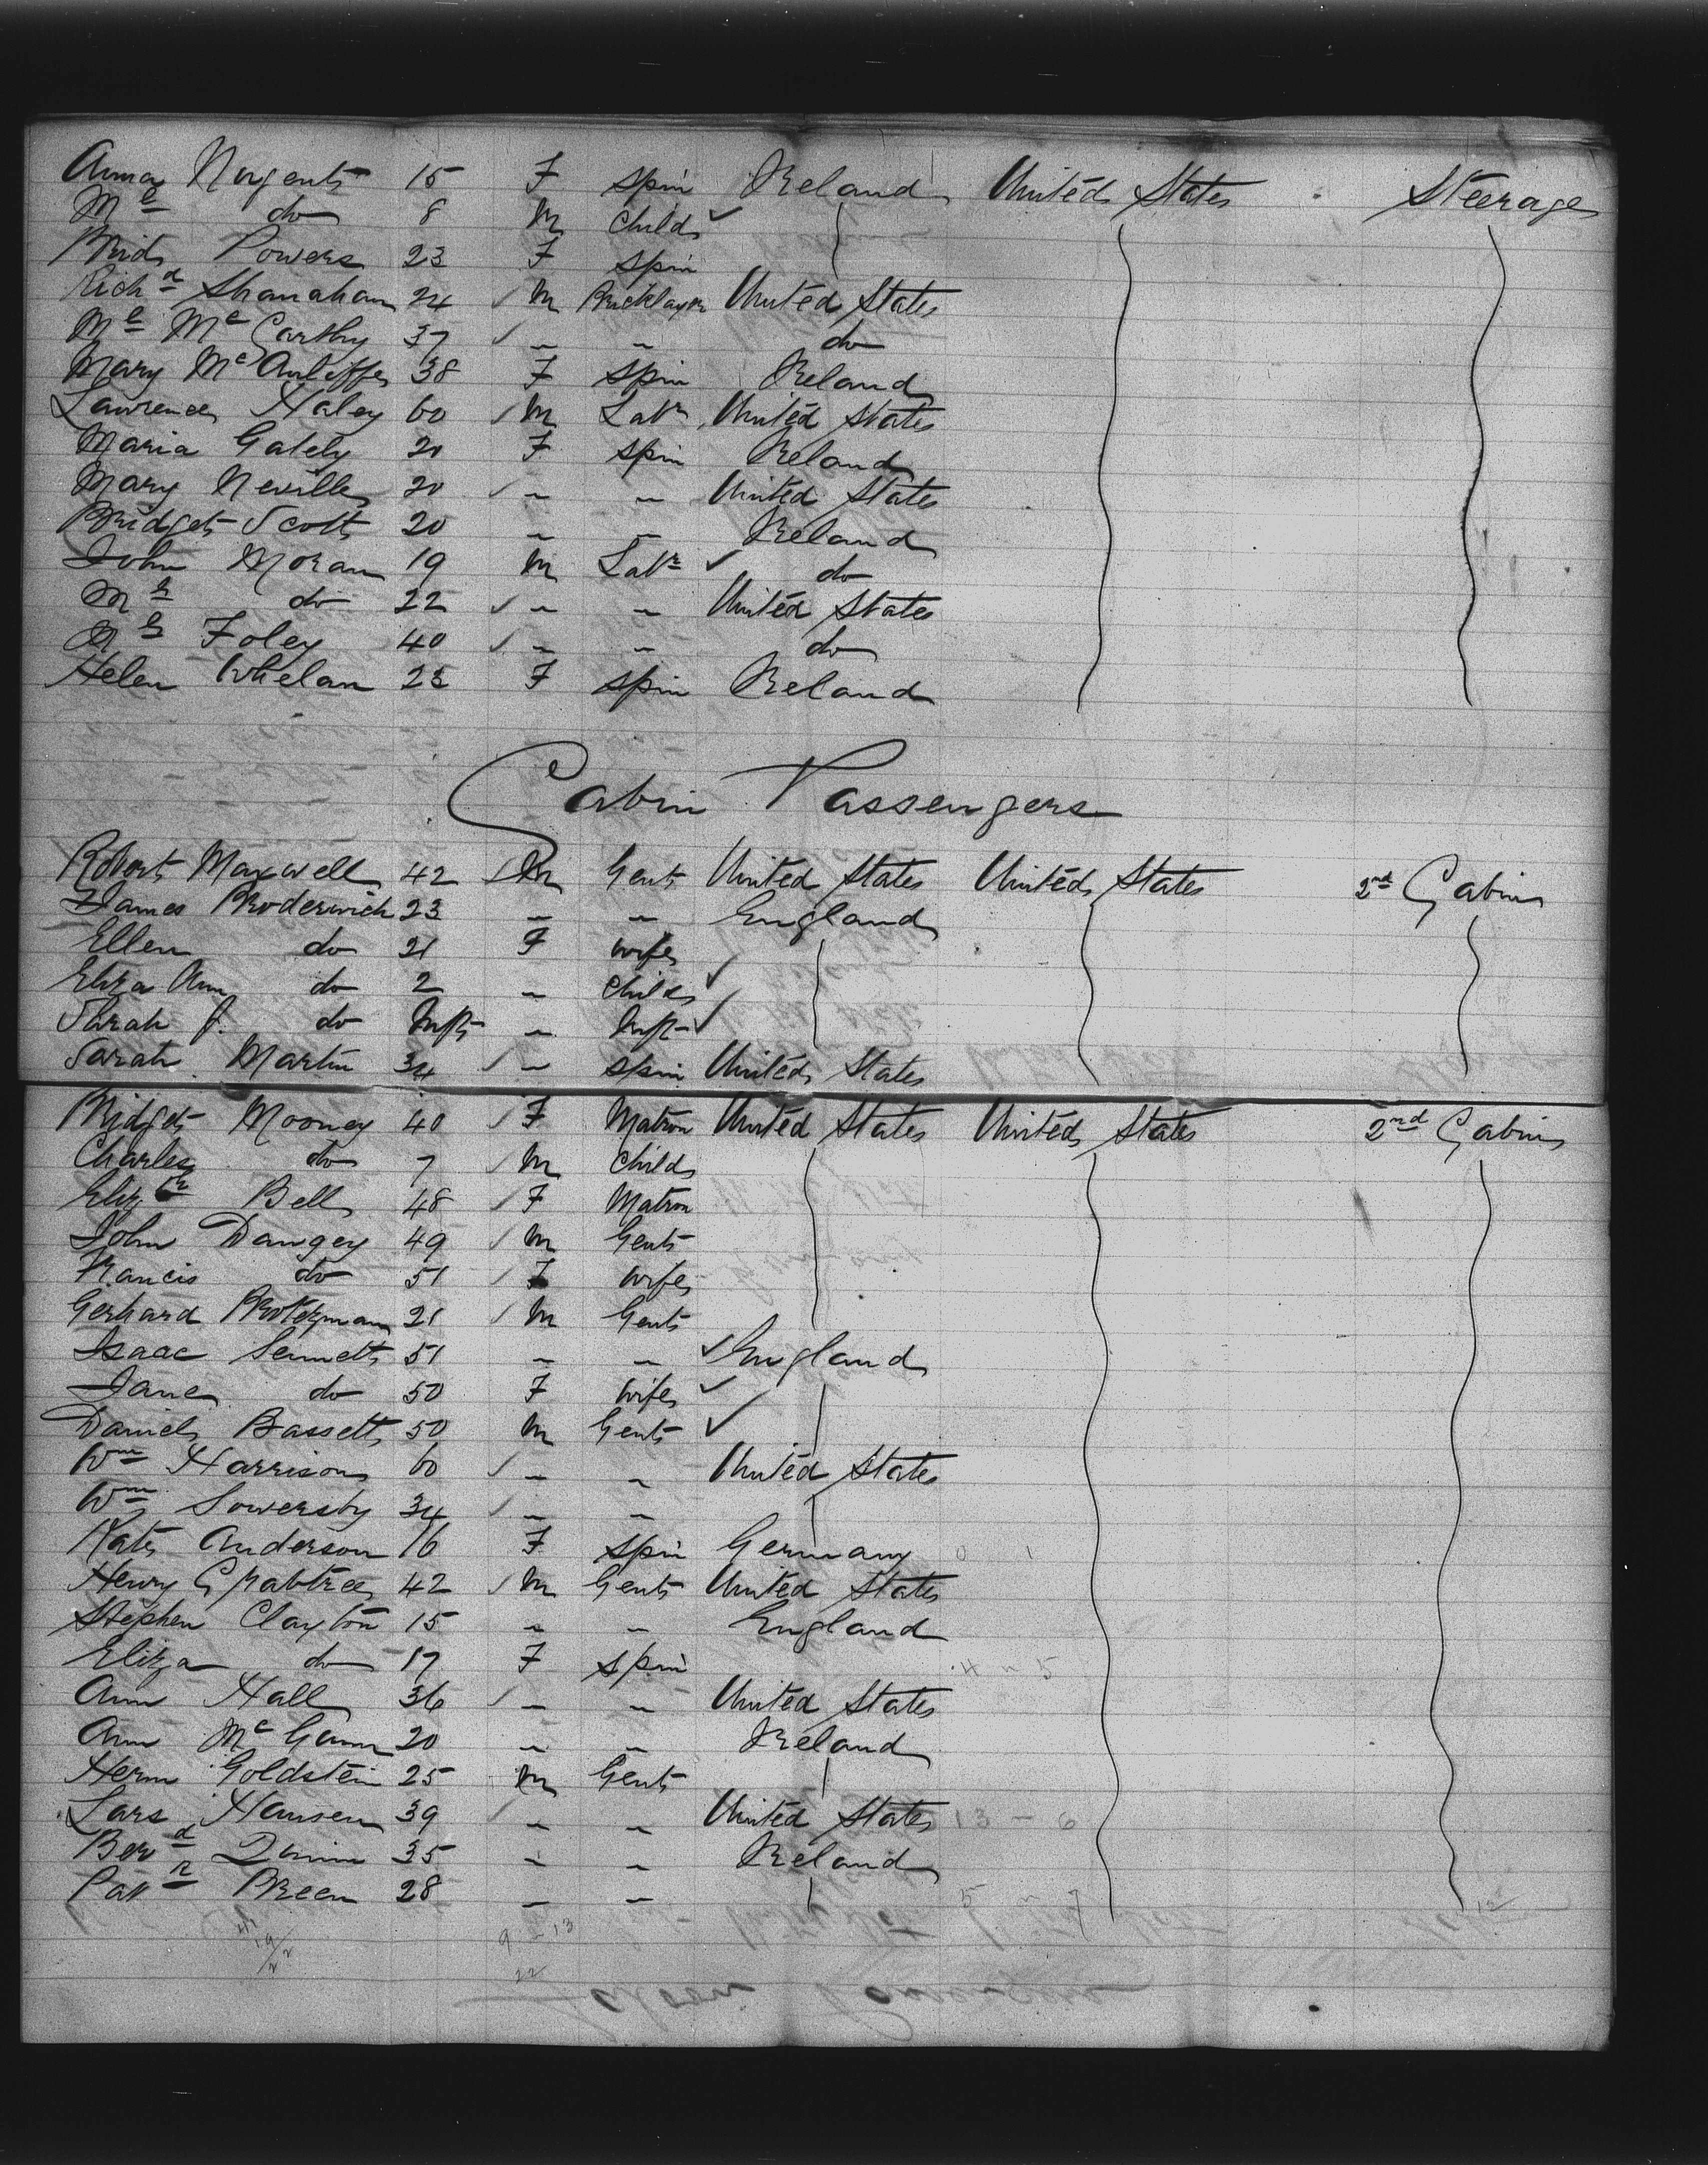 Anna Nugent 15 F Spin Ireland United States Steerage
Ml do 8 M Child
Brid Powers 23 F Spin
Richd Shanahan 24 M Bricklayer United States
Ml McCarthy 37 " " do
Mary McAuliffe 38 F Spin Ireland
Lawrence Haley 60 M Labr United States
Maria Gately 20 F Spin Ireland
Mary Neville 20 " " United States
Bridget Scott 20 " " Ireland
John Moran 19 M Labr do
do 22 " " United States
Foley 40 " " do
Helen Whelan 23 F Spin Ireland
Cabin Passengers
Robert Maxwell 42 M Gent United States United States 2nd Cabin
James Broderwick 23 " " England
Ellen do 21 F Wife
Eliza Ann do 2 " Child
Sarah J. do Inft " Inft
Sarah Martin 34 " Spin United States
Bridget Mooney 40 F Matron United States United States 2nd Cabin
Charles do 7 M Child
Elizth Bell 48 F Matron
John Dangey 49 M Gent
Francis do 51 F Wife
Gerhard 21 M Gent
Isaac Sennett 51 " " England
Jane do 50 F Wife
Daniel Bassett 50 M Gent
Wm Harrison 60 " " United States
Wm Sowersby 34 " "
Kate Anderson 16 F Spin Germany
Henry Crabtree 42 M Gent United States
Stephen Clayton 15 " " England
Eliza do 17 F Spin
Ann Hall 36 " " United States
Ann McGann 20 " " Ireland
Herm Goldstein 25 M Gent
Lars Hansen 39 " " United States 13 - 6
Berd Quinn 35 " " Ireland
Patk Breen 28 " "